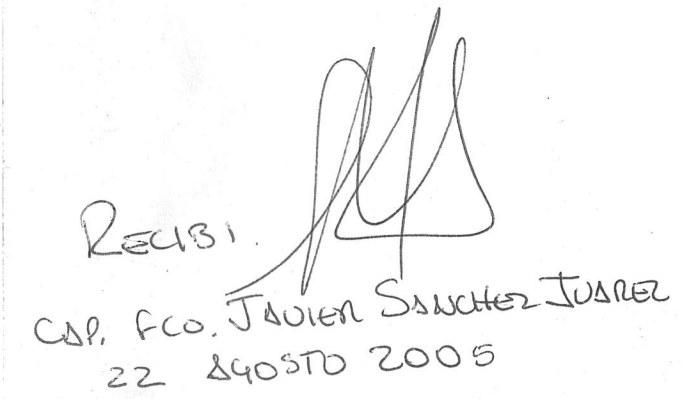 RECIBI.
CAP. FCO. JAVIER SANCHEZ JUAREZ
22 AGOSTO 2005